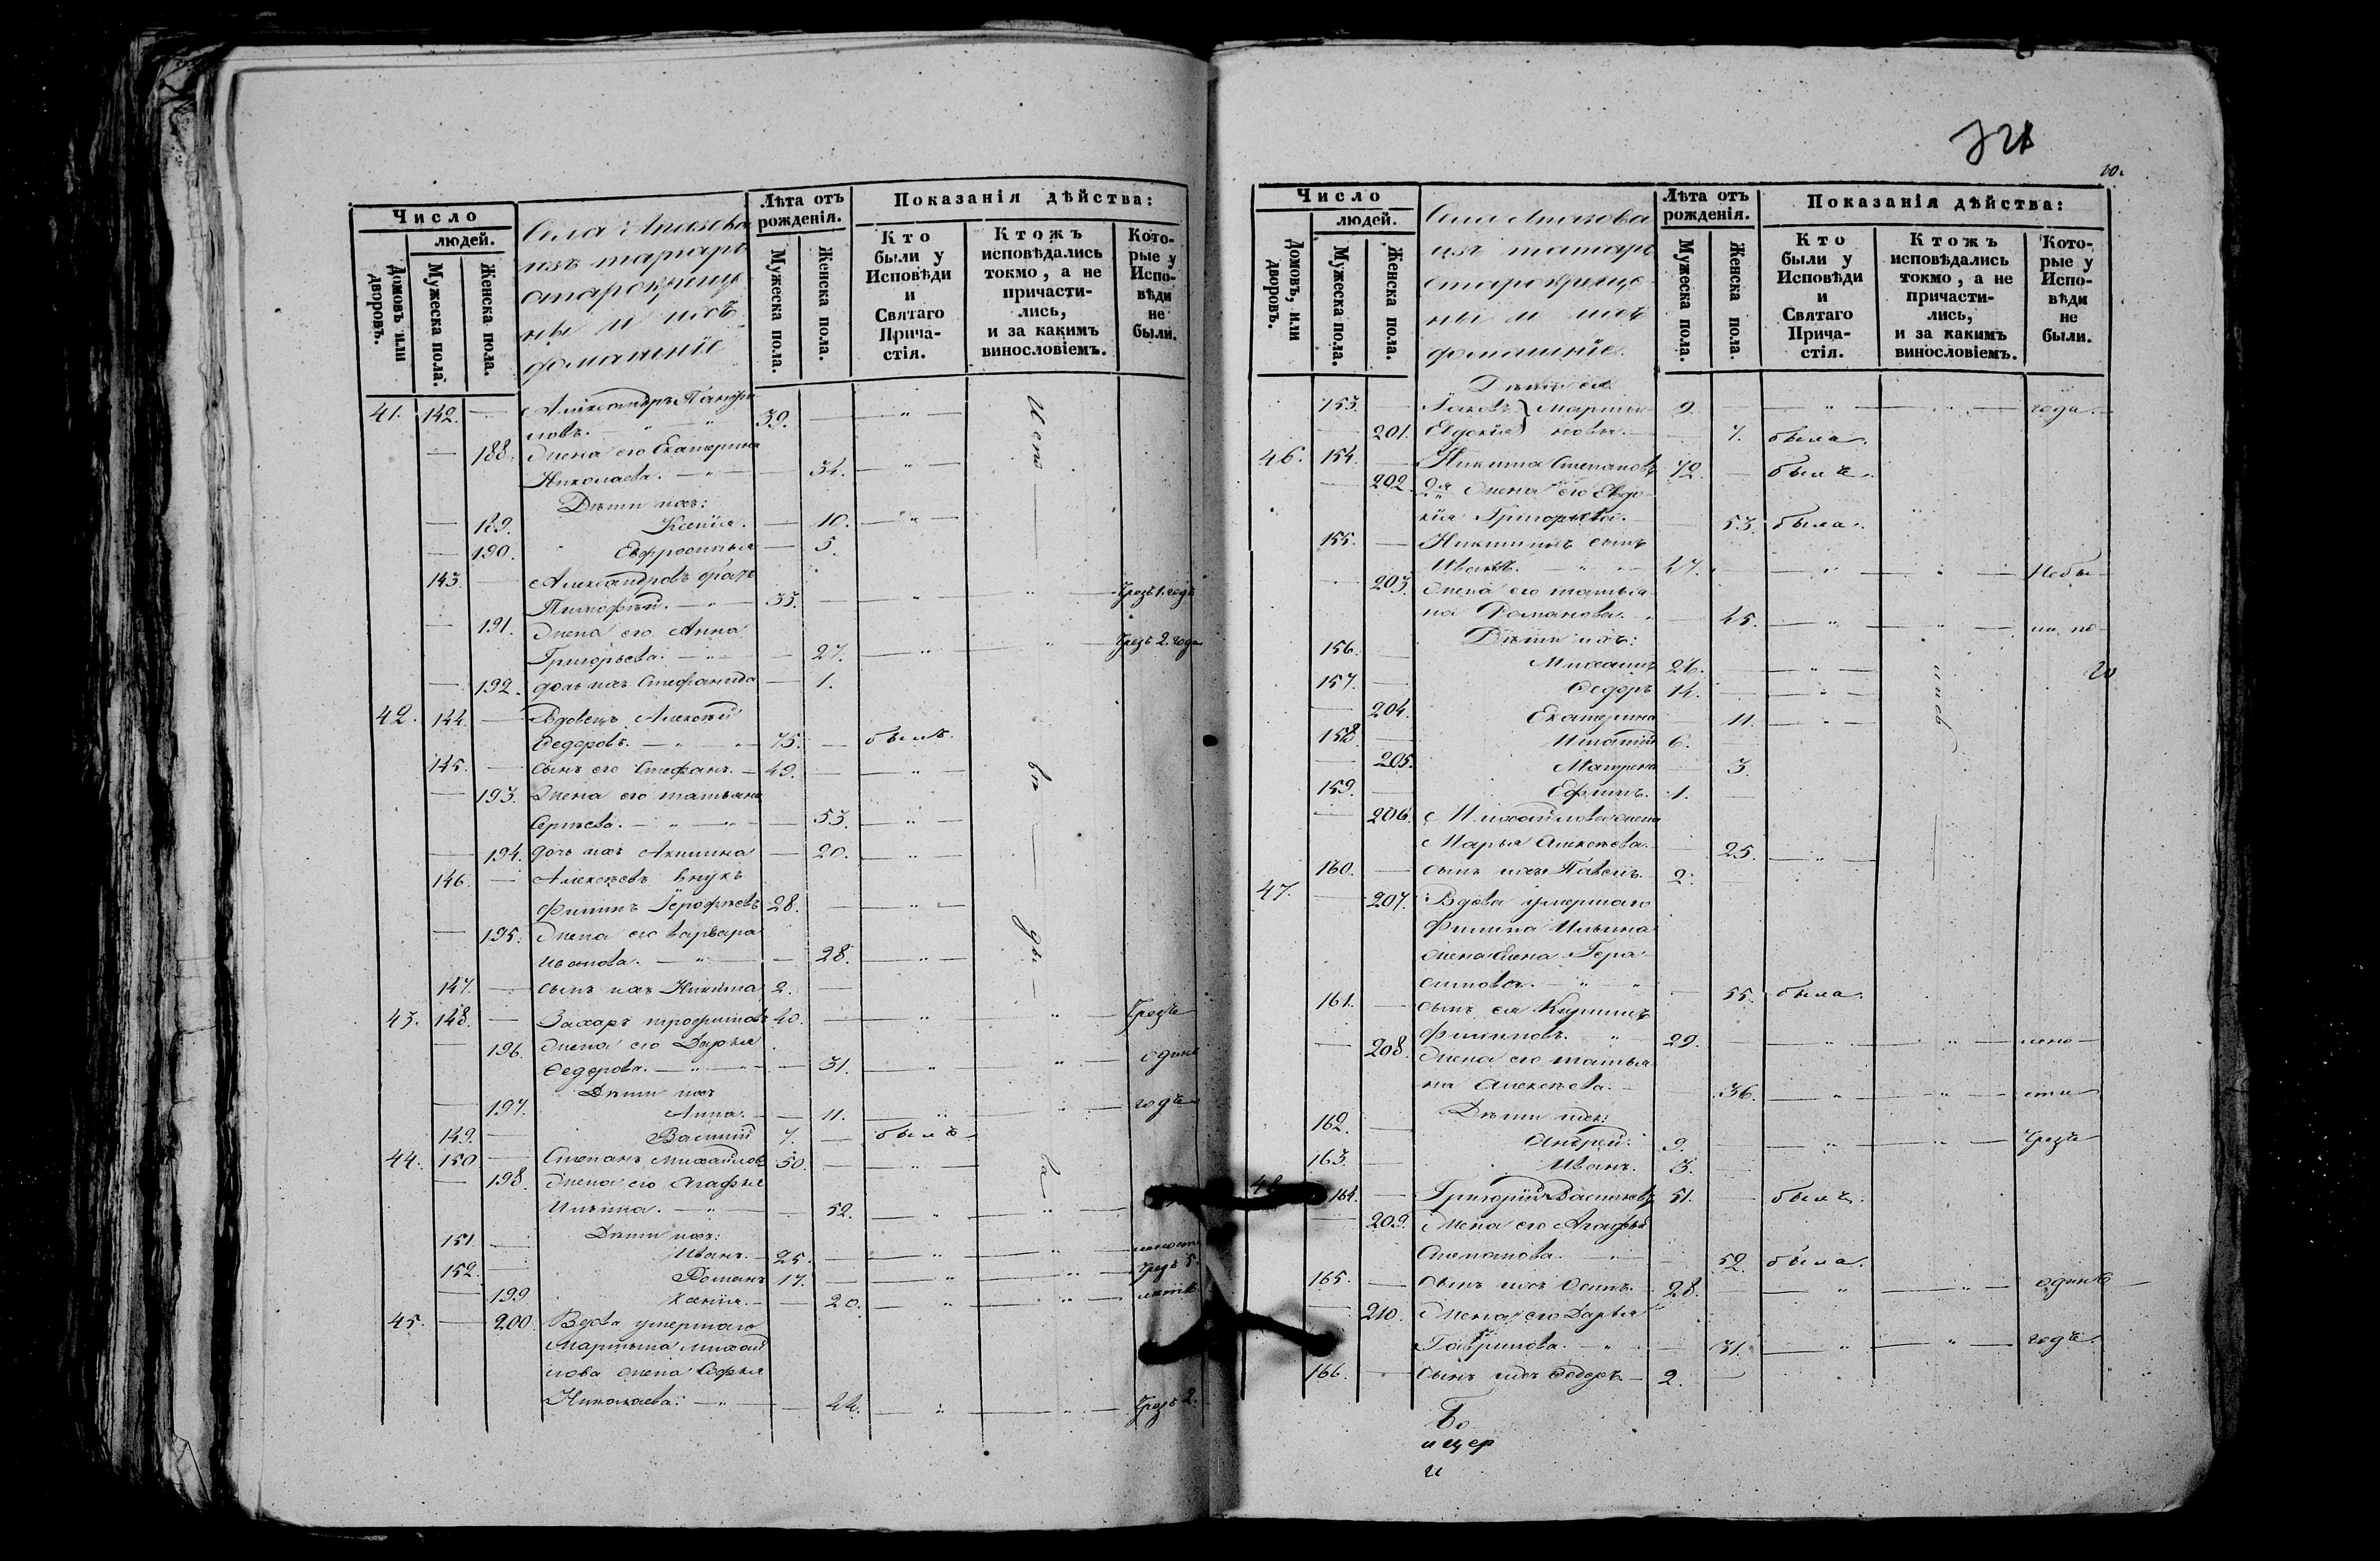 Число
людей.
Домовъ или дворовъ.
Мужеска пола.
Женска пола.
Села Апазова
изъ татаръ
старокреще
ны и ихъ
домашніе
Лѣта отъ рожденія.
Мужеска пола.
Женска пола.
Показанія дѣйства:
Кто были у Исповѣди и Святаго Прича- стія.
Ктожъ исповѣдались токмо, а не причасти- лись, и за какимъ винословіемъ.
Кото- рые у Испо- вѣди не были.
41. 142. — Александръ
ловъ. — 39. —
— 188. Жена его Екатерина
Николаева. — 34. —
Дѣти ихъ:
— 189. Ксенія. — 10. —
— 190. Евфросинья — 5.
143. — Александровъ братъ
Тимофѣй. — 33. — Чрезъ 1. годъ
— 191. Жена его Анна
Григорьева. — 27. — Чрезъ 2. года
— 192. дочь ихъ Стефанида — 1.
42. 144. — Вдовецъ Алексѣй
Федоровъ. — 75. — былъ.
145. — Сынъ его Стефанъ. — 49. —
— 193. Жена его татьяна
Сергѣева. — 53. —
— 194. дочь ихъ Акилина — 20. —
146. — Алексѣевъ внукъ
Филипъ Іерофѣевъ 28. —
— 195. Жена его варвара
иванова. — 28. —
147. — сынъ ихъ Никита 2. —
43. 148. — Захаръ трофимовъ 40. — Чрезъ
— 196. Жена его Дарья
Федорова. — 31. — одинъ
Дѣти ихъ
— 197. Анна. — 11. — годъ
149. — Василій 7. — былъ
44. 150. — Степанъ Михайловъ 50. —
— 198. Жена его Агафья
Ильина. — 52. —
Дѣти ихъ:
151. — Иванъ. — 25. —
152. — Романъ 17. — Чрезъ 5.
— 199. Ксенія. — 20. — лѣтъ
45. — 200. Вдова умершаго
Мартына михай
лова жена Софья
Николаева: — 44. — Чрезъ 2.
10.
Число
людей.
Домовъ, или дворовъ.
Мужеска пола.
Женска пола.
Села Апазова
изъ татаръ
старокреще
ны и ихъ
домашніе.
Лѣта отъ рожденія.
Мужеска пола.
Женска пола.
Показанія дѣйства:
Кто были у Исповѣди и Святаго Прича- стія.
Ктожъ исповѣдались токмо, а не причасти- лись, и за какимъ винословіемъ.
Кото- рые у Испо- вѣди не были.
Дѣти ея
153. — Іаковъ } Марты 9. — года.
— 201. Евдокія новы. — 7. была.
46. 154. — Никита Степановъ 72. — былъ.
— 202. 2я Жена его Евдо
кія Григорьева. — 53. была.
155. — Никитинъ сынъ
Иванъ. — 47. — Небы
— 203. Жена его татья
на Романова. — 45. — ли по
156. — Дѣти ихъ:
Михаилъ 26. —
157. — Федоръ 14. —
— 204. Екатерина — 11. —
158. — Игнатій 6. —
— 205. Матрена — 3.
159. — Ефимъ. 1. —
— 206. Михайлова жена
Марья Алексѣева. — 25. —
160. — сынъ ихъ Павелъ. 2. —
47. — 207. Вдова умершаго
Филипа Ильина
жена Елена Гера
симова. — 55. была.
161. — сынъ ея Кирилъ
Филиповъ. — 29. —
— 208. Жена его татья
на Алексѣева. — 36. —
162. — Дѣти ихъ:
Андрей: 9. — Чрезъ
163. — Иванъ. 3. —
48. 164. — Григорій Васильевъ 51. — былъ.
— 209. Жена его Агафья
Степанова. — 52. была.
165. — Сынъ ихъ Осипъ. — 28. — одинъ
— 210. Жена его Дарья
Гаврилова. — 31. — годъ
166. — Сынъ ихъ Федоръ — 2. —